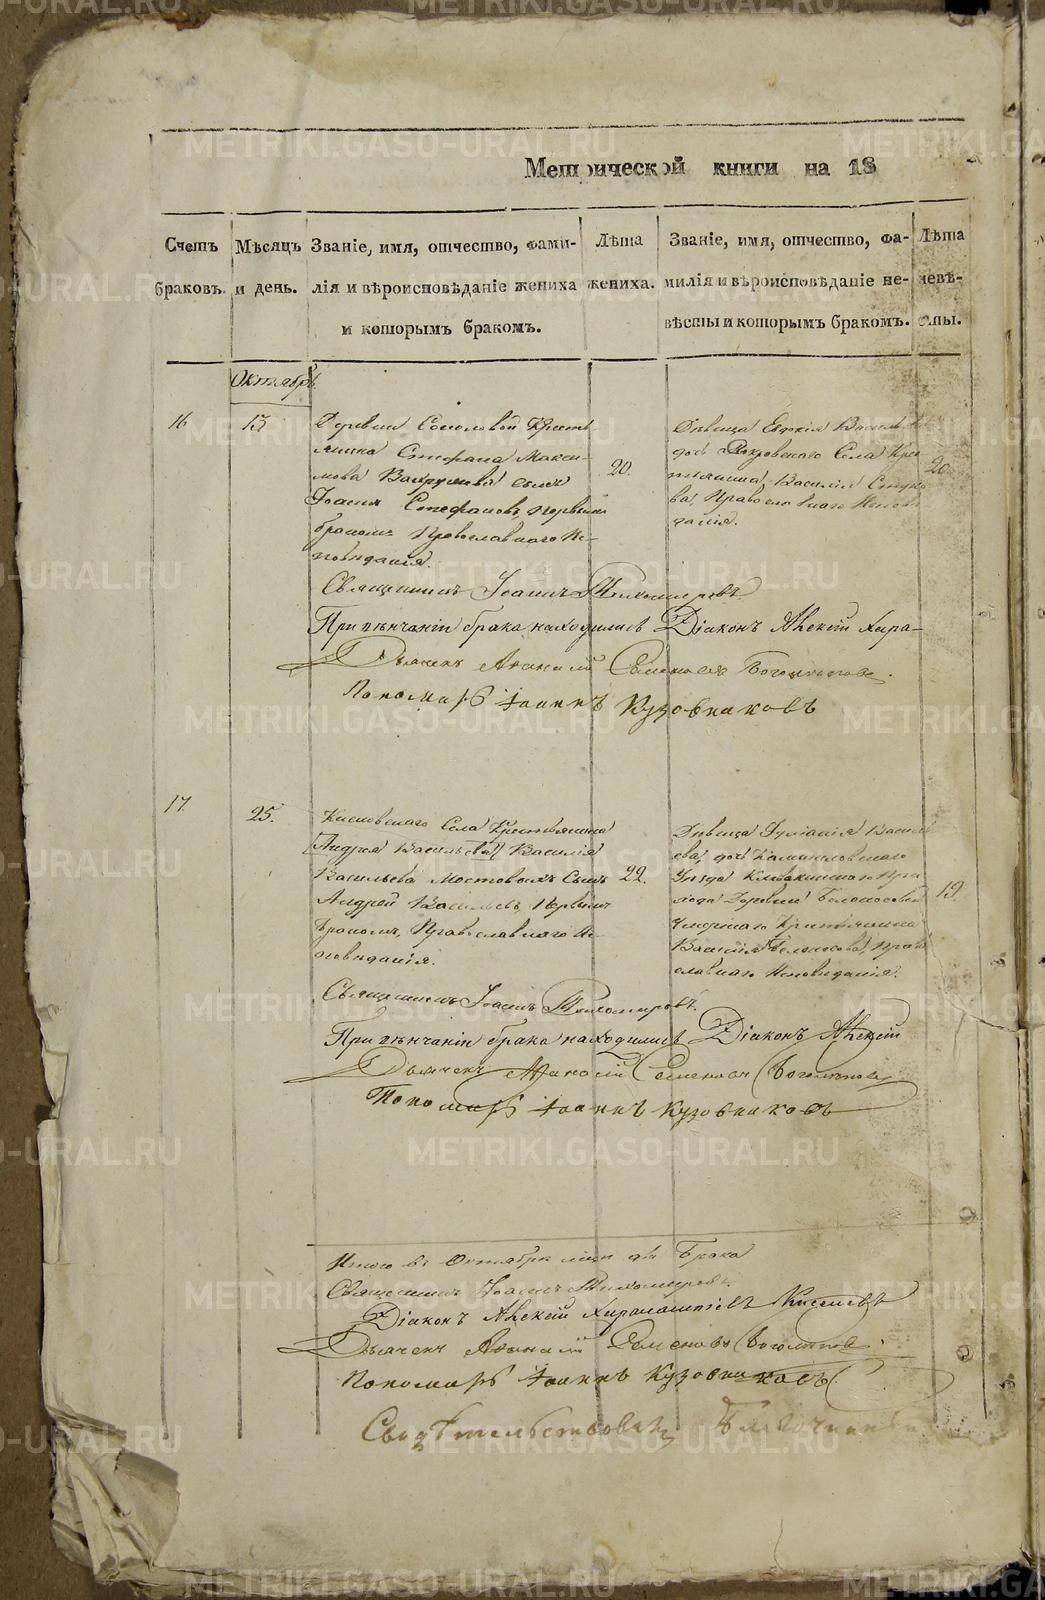 Метрической книги на 18
Счетъ браковъ.
Мѣсяцъ и день.
Званіе, имя, отчество, фами-
лія и вѣроисповѣданіе жениха
и которымъ бракомъ.
Лѣта жениха.
Званіе, имя, отчество, фа-
милія и вѣроисповѣданіе не-
вѣсты и которымъ бракомъ.
Лѣта невѣ-
сты.
Октябрь
16
13
Деревни Соколовой Кресть
янина Стефана Макси-
мова Вахрушева сынъ
Іоаннъ Стефановъ, первымъ
бракомъ Православнаго Ис-
повѣданія.
20.
Дѣвица Евдокія Василь
дочь Покровскаго Села Кре
стьянина, Василія
ва, Православнаго Исповѣ
данія.
20
Священникъ Іоаннъ Тихомировъ
При вѣнчаніи брака находились Діаконъ Алексій Хара-
Дьячекъ Афанасій Семеновъ
Пономарь Іоаннъ Кузовниковъ
17.
25.
Кисловскаго Села Крестьянина
Андрея Васильева Василія
Васильева Мостовыхъ Сынъ
Андрей Васильевъ Первымъ
Бракомъ, Православнаго Ис-
повѣданія.
22.
Дѣвица Іуліанія Василь
ева, дочь Камышловскаго
Уѣзда Клевакинскаго При
хода Деревни Белоносовой
Умершаго Крестьянина
Василія Белоносова, Право
славнаго Исповѣданія.
19.
Священникъ Іоаннъ Тихомировъ.
При вѣнчаніи брака находились Діаконъ Алексій
Дьячекъ Афанасій Семеновъ
Пономарь Іоаннъ Кузовниковъ
Итого въ Октябрѣ два Брака
Священникъ Іоаннъ Тихомировъ.
Діаконъ Алексій Харалампіевъ Киселевъ
Дьячекъ Афанасій Семеновъ
Пономарь Іоаннъ Кузовниковъ
Свидѣтельствовалъ Благочинный
METRIKI.GASO-URAL.RU